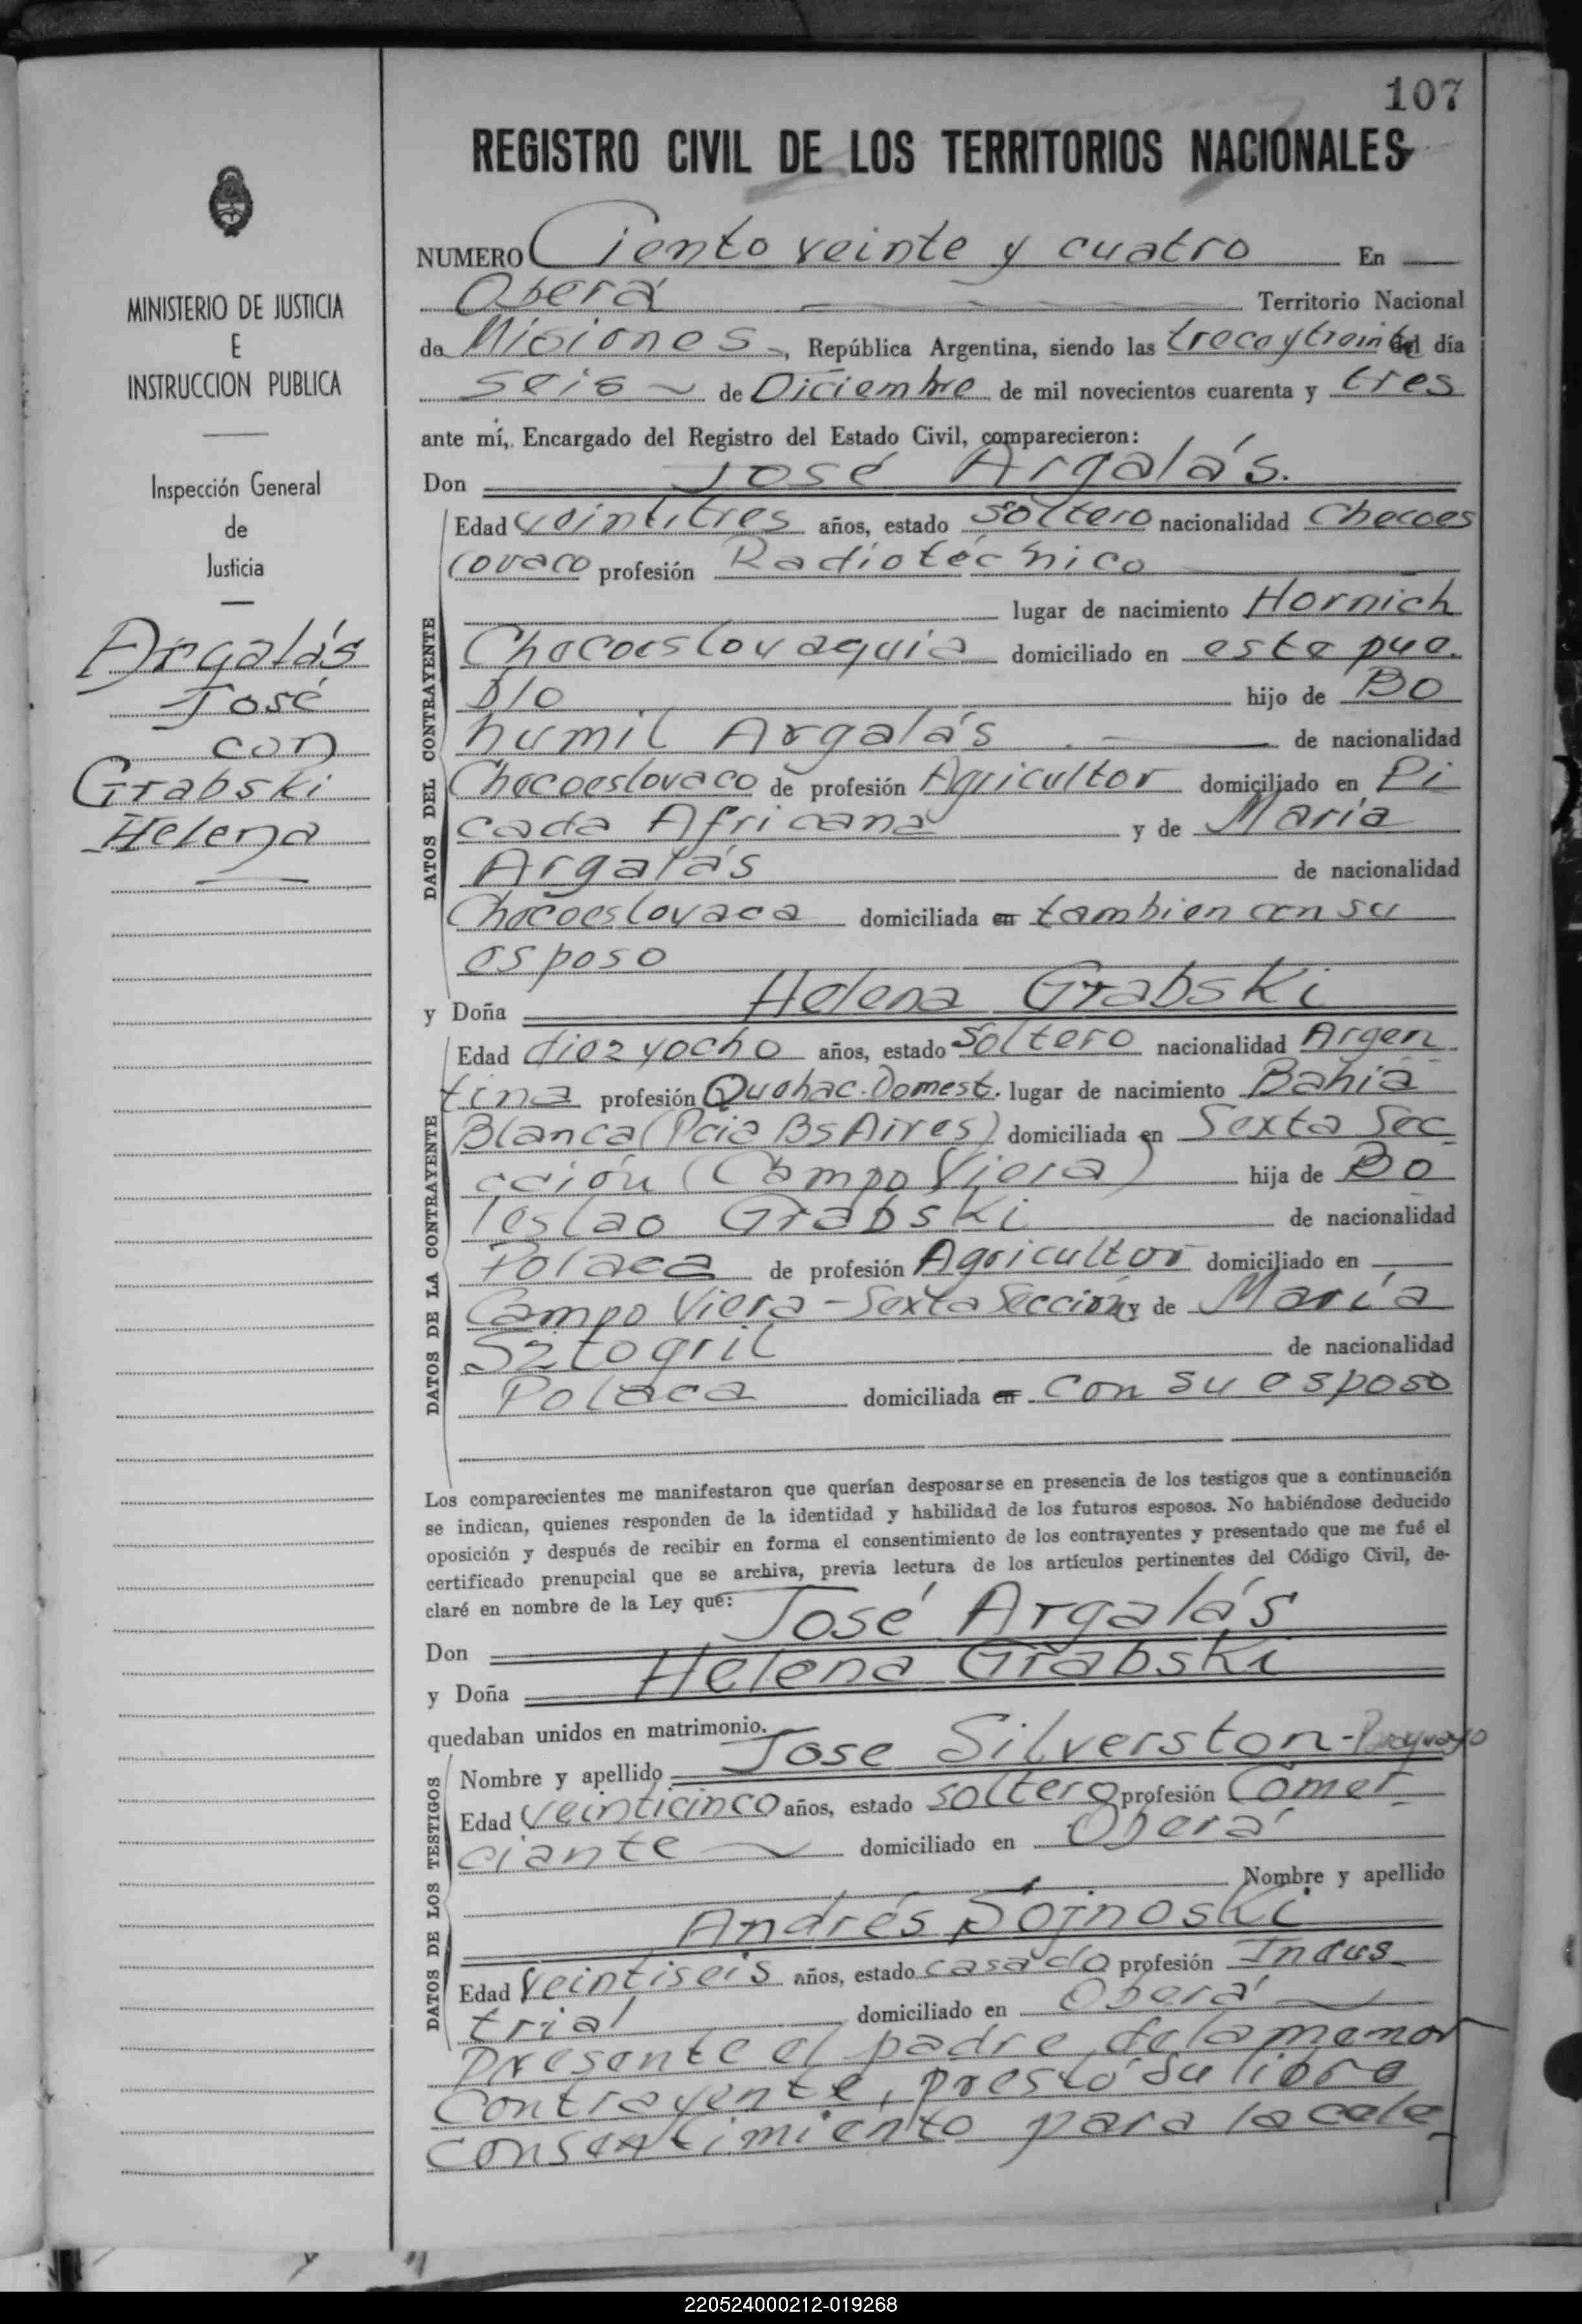 107
REGISTRO CIVIL DE LOS TERRITORIOS NACIONALES
MINISTERIO DE JUSTICIA
E
INSTRUCCION PUBLICA
Inspección General
de
Justicia
Argalás
José
con
Grabski
Helena
NUMERO Ciento veinte y cuatro En
Oberá Territorio Nacional
de Misiones, República Argentina, siendo las treceytreinta del día
seis de Diciembre de mil novecientos cuarenta y tres
ante mí, Encargado del Registro del Estado Civil, comparecieron:
Don José Argalás.
DATOS DEL CONTRAYENTE
Edad veintitres años, estado soltero nacionalidad Checoes
lovaco profesión Radiotécnico
lugar de nacimiento Hornich
Checoeslovaquia domiciliado en este pue
blo hijo de Bo
humil Argalás de nacionalidad
Checoeslovaco de profesión Agricultor domiciliado en Pi
cada Africana y de María
Argalás de nacionalidad
Checoeslovaca domiciliada en tambien con su
esposo
y Doña Helena Grabski
DATOS DE LA CONTRAYENTE
Edad diez yocho años, estado soltero nacionalidad Argen
tina profesión Quehac. Domest. lugar de nacimiento Bahia
Blanca (Pcia Bs Aires) domiciliada en Sexta Sec
cción (Campo Viera) hija de Bo
leslao Grabski de nacionalidad
Polaca de profesión Agricultor domiciliado en
Campo Viera - Sexta Sección y de María
Sztogril de nacionalidad
Polaca domiciliada en con su esposo
Los comparecientes me manifestaron que querían desposarse en presencia de los testigos que a continuación
se indican, quienes responden de la identidad y habilidad de los futuros esposos. No habiéndose deducido
oposición y después de recibir en forma el consentimiento de los contrayentes y presentado que me fué el
certificado prenupcial que se archiva, previa lectura de los artículos pertinentes del Código Civil, de-
claré en nombre de la Ley que:
Don José Argalás
y Doña Helena Grabski
quedaban unidos en matrimonio.
DATOS DE LOS TESTIGOS
Nombre y apellido Jose Silverston - Paraguayo
Edad veinticinco años, estado soltero profesión Comer
ciante domiciliado en Oberá
Nombre y apellido
Andrés Sojnoski
Edad veintiseis años, estado casado profesión Indus
trial domiciliado en Oberá
Presente el padre de la menor
contrayente, prestó su libre
consentimiento para la cele
220524000212-019268